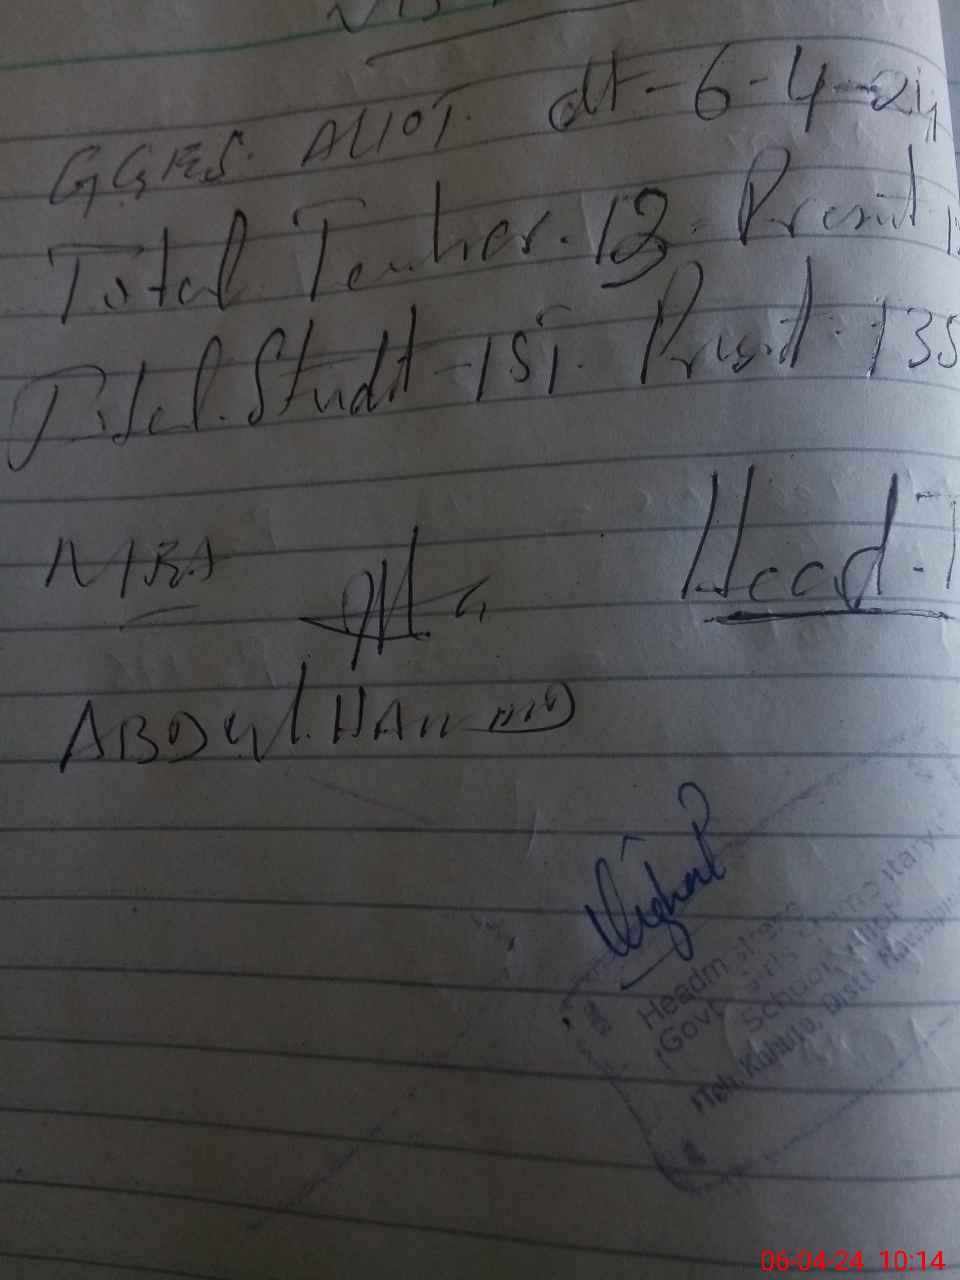 GGES. ALIOT. dt-6-4-24
Total Teacher. 13. Present
Total. Studt-151. Presit. 135
MEA
Head-T
ABDUl. HAMMID
Headmistress
Govt. Girls Elementary
School Aliot
Teh. Kahuta, Distt Rawalpin
06-04-24 10:14